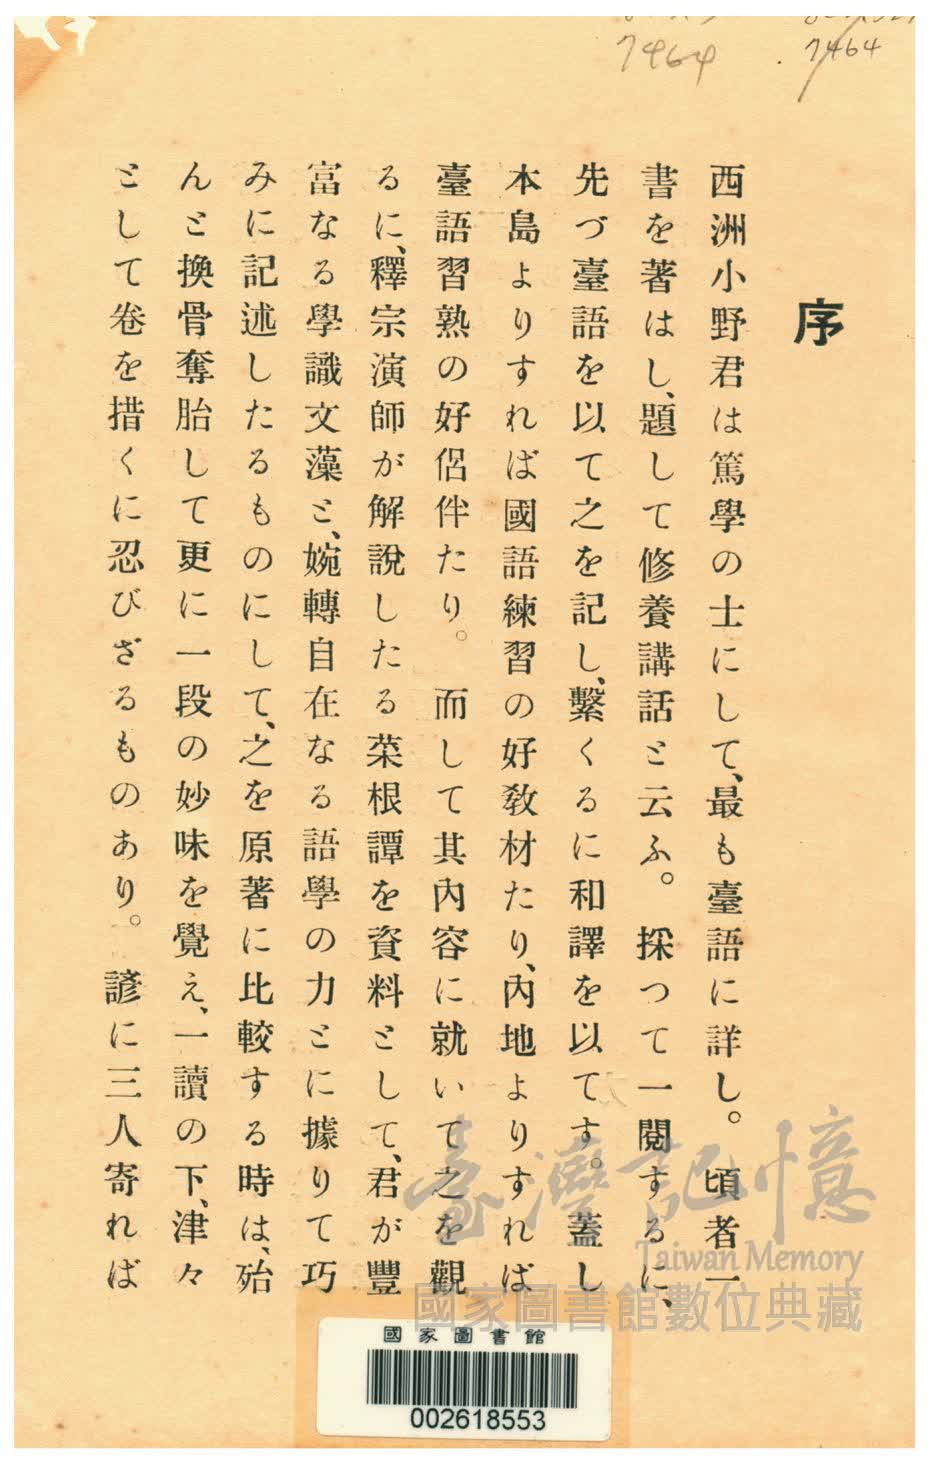 7464
7464
序
西洲小野君は篤學の士にして、最も臺語に詳し。頃者一
書を著はし、題して修養講話と云ふ。探つて一閱するに、
先づ臺語を以て之を記し、繫くるに和譯を以てす。蓋し
本島よりすれば國語練習の好敎材たり、內地よりすれば
臺語習熟の好侶伴たり。而して其內容に就いて之を觀
るに、釋宗演師が解說したる菜根譚を資料として、君が豐
富なる學識文藻と、婉轉自在なる語學の力とに據りて巧
みに記述したるものにして、之を原著に比較する時は、殆
んと換骨奪胎して更に一段の妙味を覺え、一讀の下、津々
として卷を措くに忍びざるものあり。諺に三人寄れば
臺灣記憶
Taiwan Memory
國家圖書館數位典藏
國家圖書館
002618553